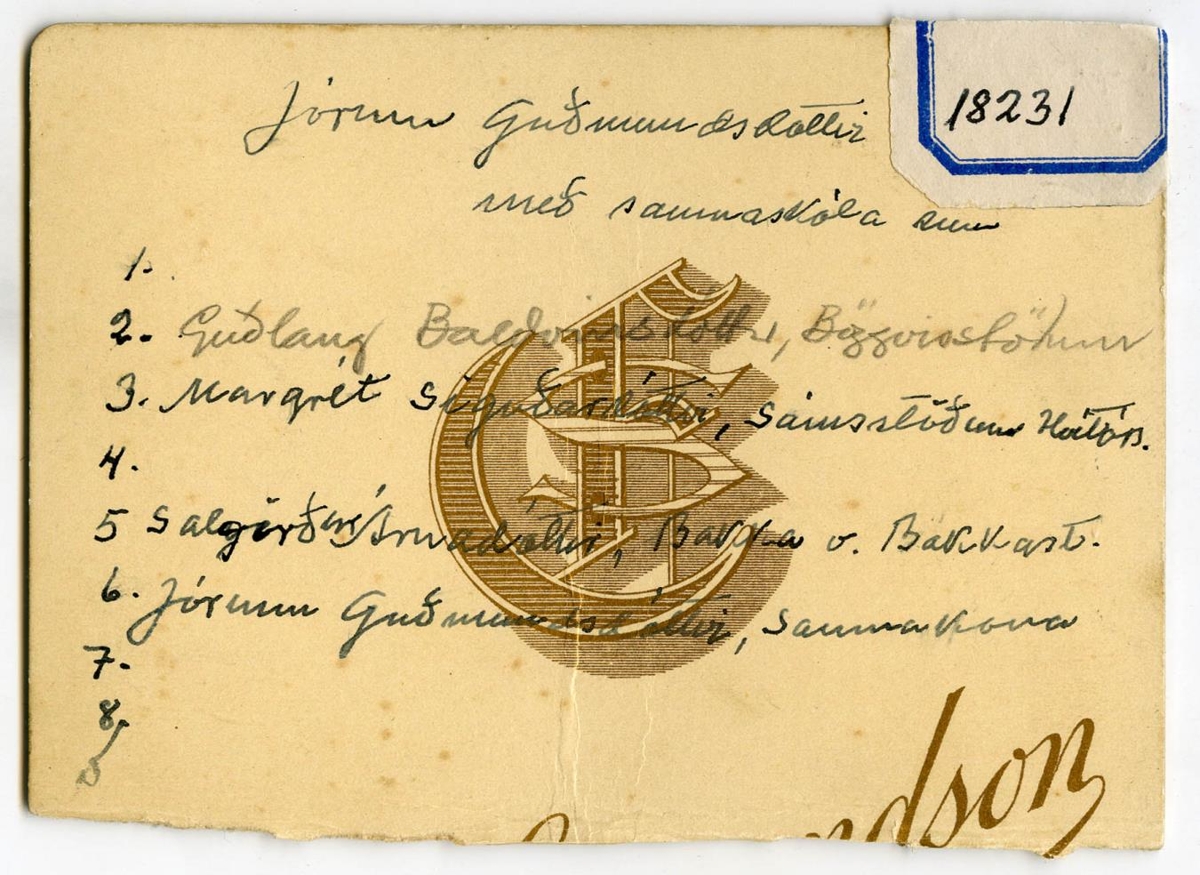 18231
Jórunn Guðmundsdóttir
með saumaskóla sinn
1.
2. Guðlaug Baldvinsdóttir, Böggvisstöðum
3. Margrét Sigurðardóttir, Sámsstöðum
4.
5 Salgerður Árnadóttir, Bakka v. Bakkast.
6. Jórunn Guðmundsdóttir, saumakona
7.
8.
dson